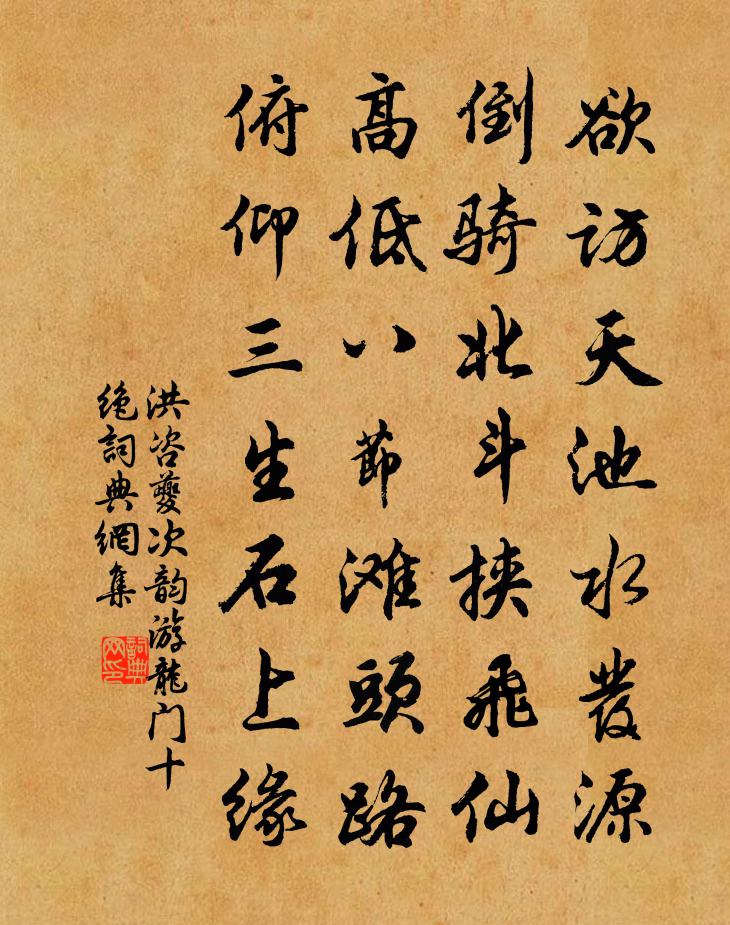 欲访天池水發源
倒骑北斗挟飛仙
高低八節滩頭路
俯仰三生石上缘
洪咨夔次韵游龍门十
绝詞典網集
詞典网印